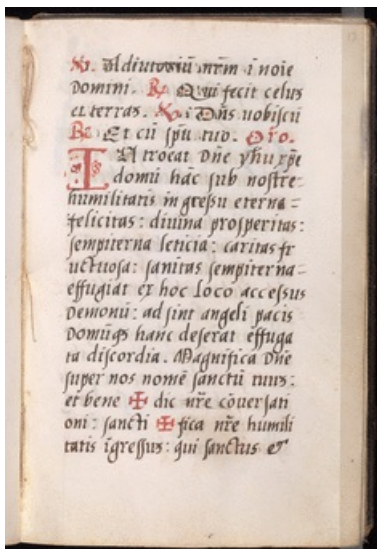 V. Adiutoriū nr̄m ī noīe
Domini. R. Qui fecit celus
et terras. V. Dn̄s uobiscū
R. Et cū spū tuo. Or̄o.
Introeat Dn̄e yhu xp̄e
domū hāc sub nostre
humilitatis in gressu eterna =
felicitas: diuina prosperitas:
sempiterna leticia: caritas fr
uctuosa: sanitas sempiterna =
effugiat ex hoc loco accessus
Demonū: ad sint angeli pacis
Domūqꝫ hanc deserat effuga
ta discordia. Magnifica Dn̄e
super nos nomē sanctū tuus:
et bene ✠ dic nr̄e cōuersati
oni: sancti ✠ fica nr̄e humili
tatis īgressus: qui sanctus &